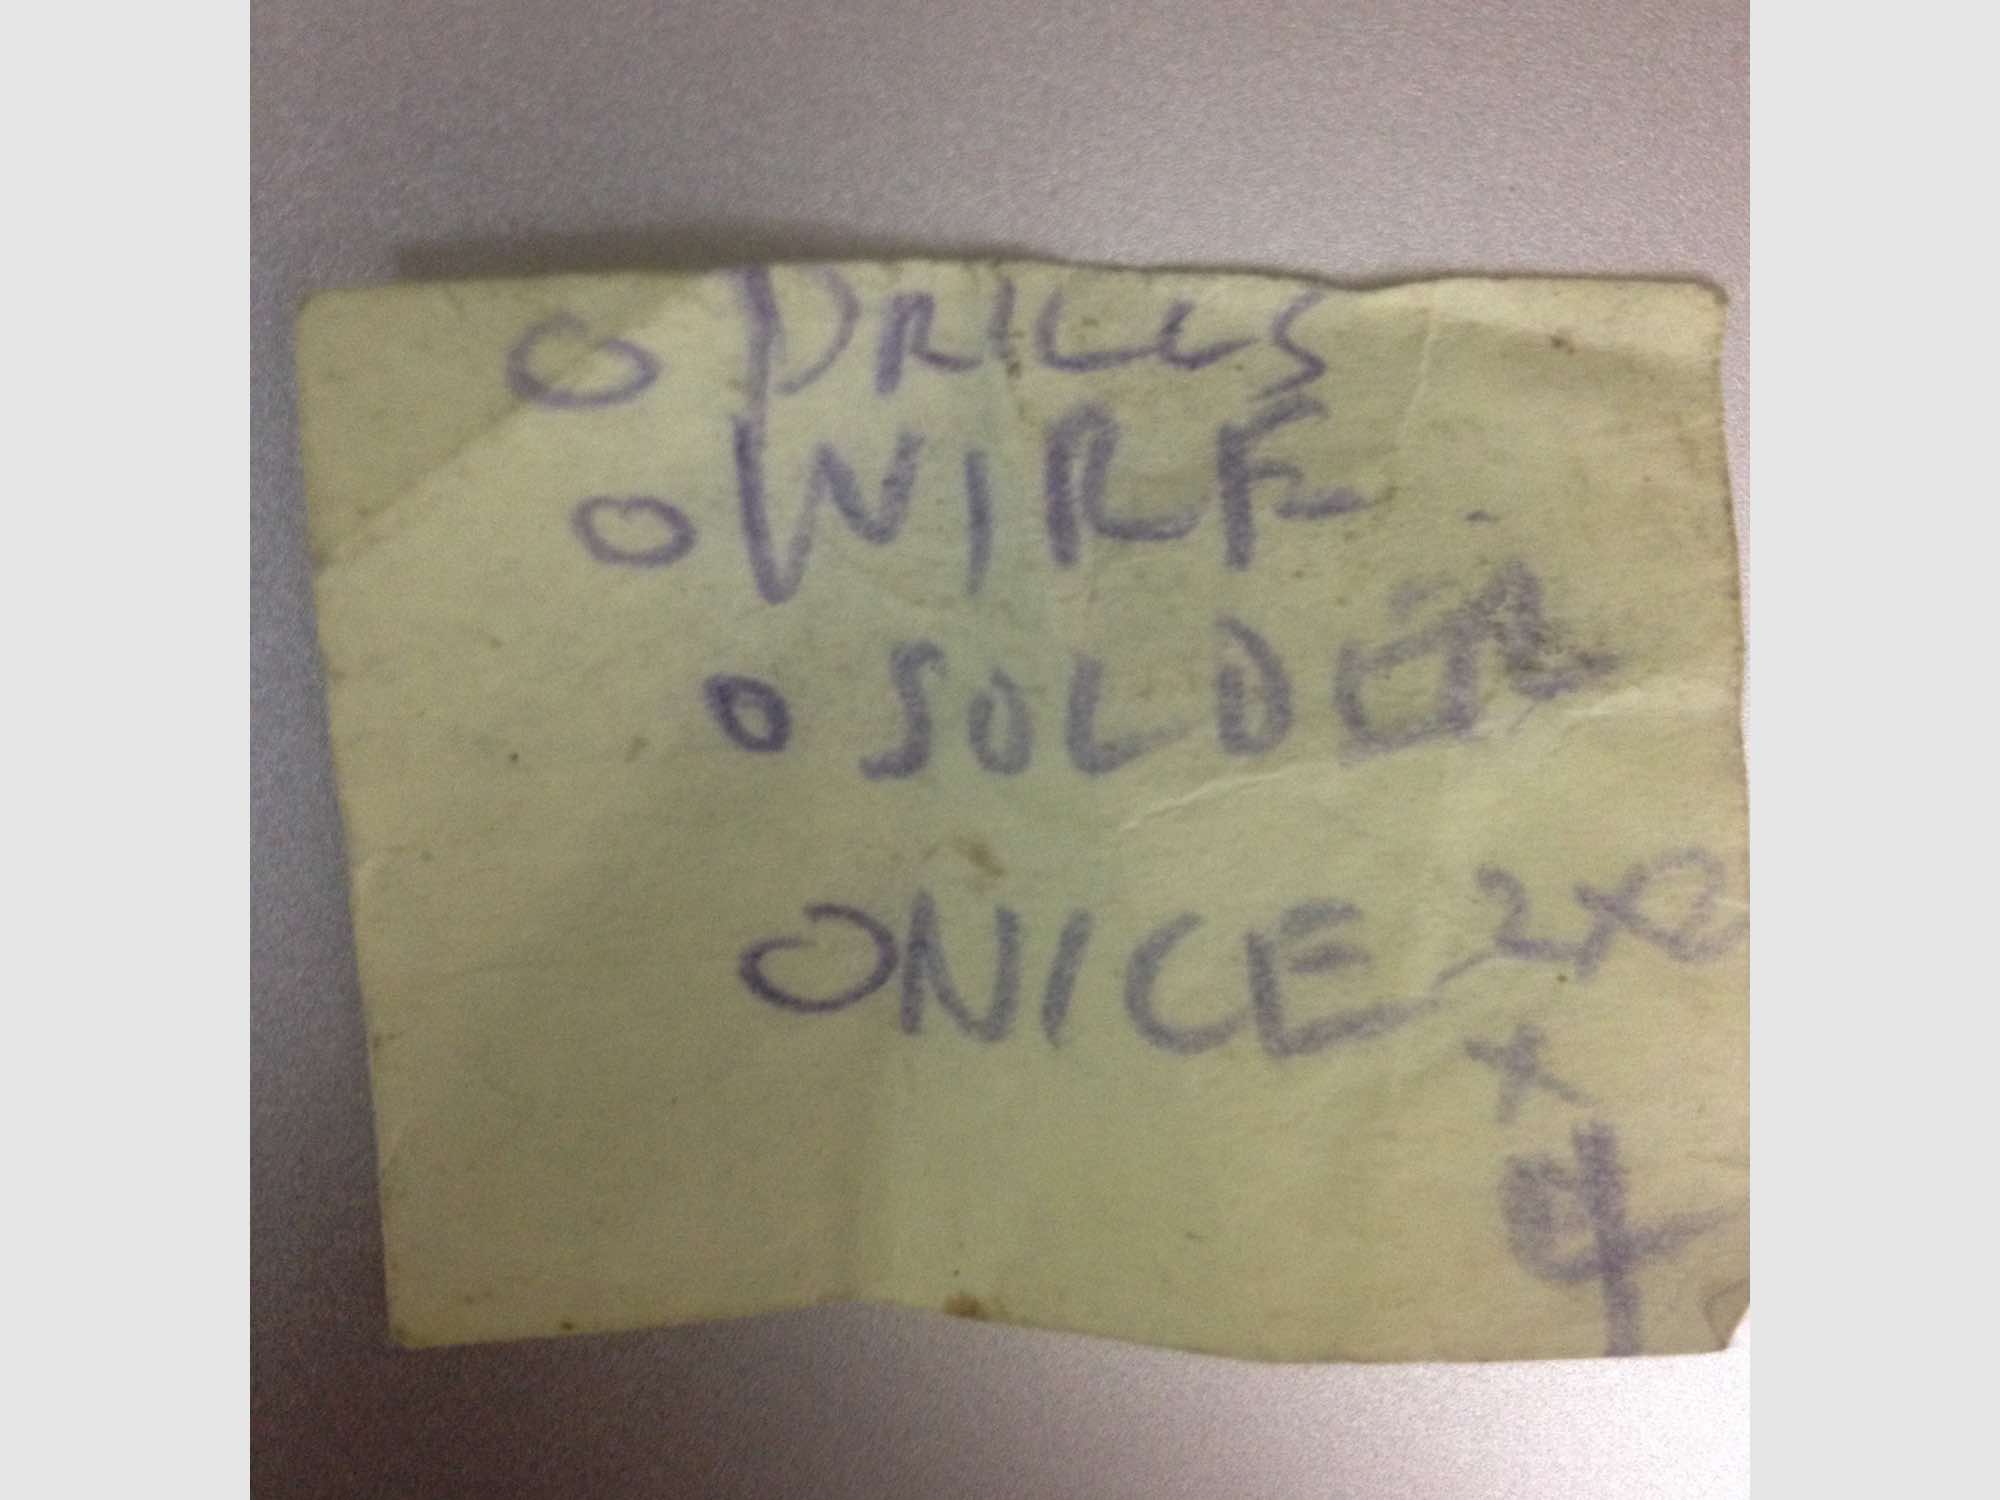 O DRILLS
O WIRE
O SOLDER
O NICE 2x8
x
4